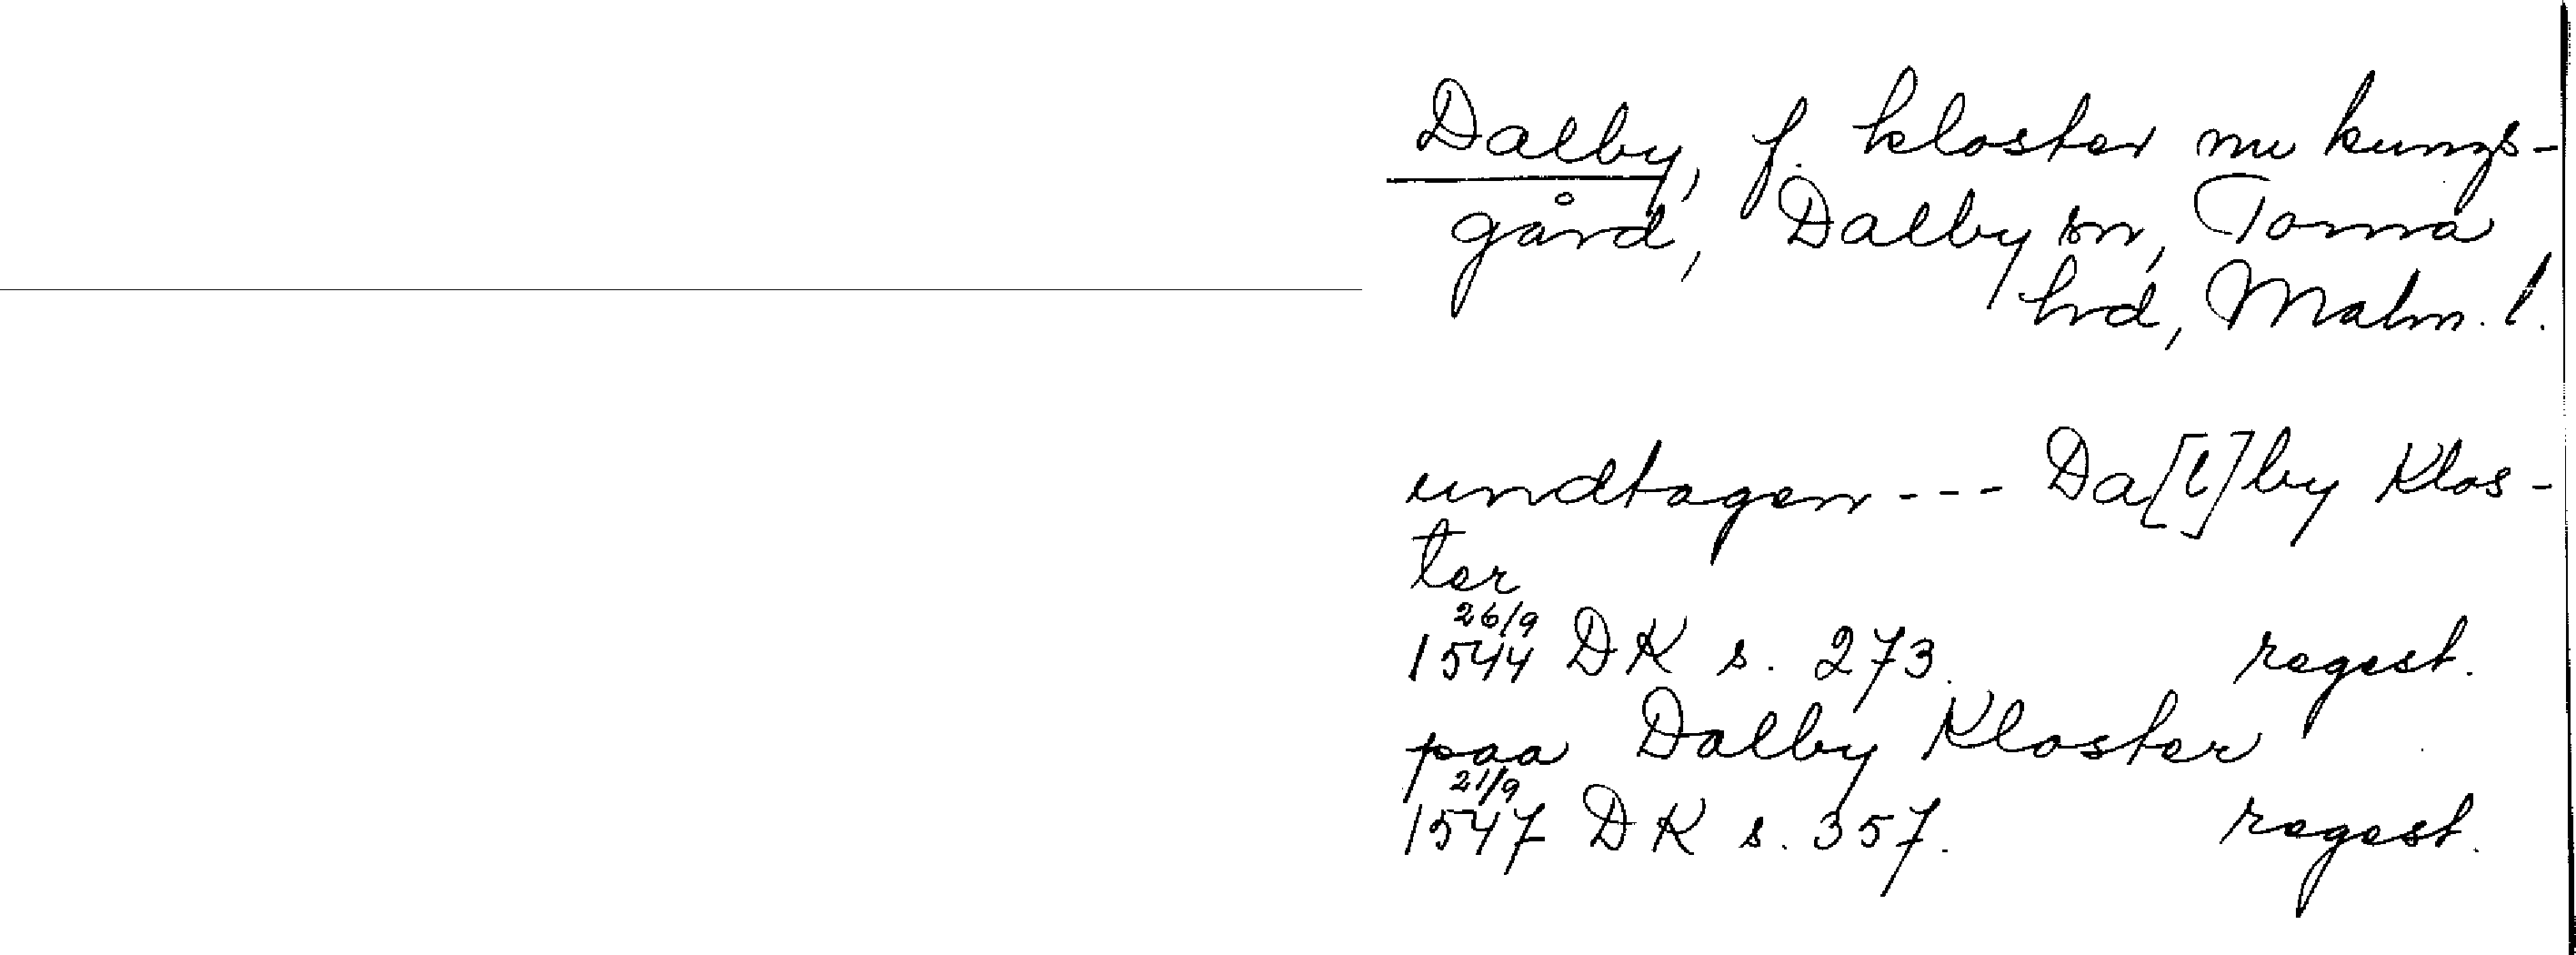 Dalby, f. kloster nu kungs-
gård, Dalby sn, Torna
hrd, Malm. l.
undtagen --- Da[l]by Klos-
ter
26/9
1544 DK s. 273. regest.
paa Dalby Kloster
21/9
1547 DK s. 357. regest.